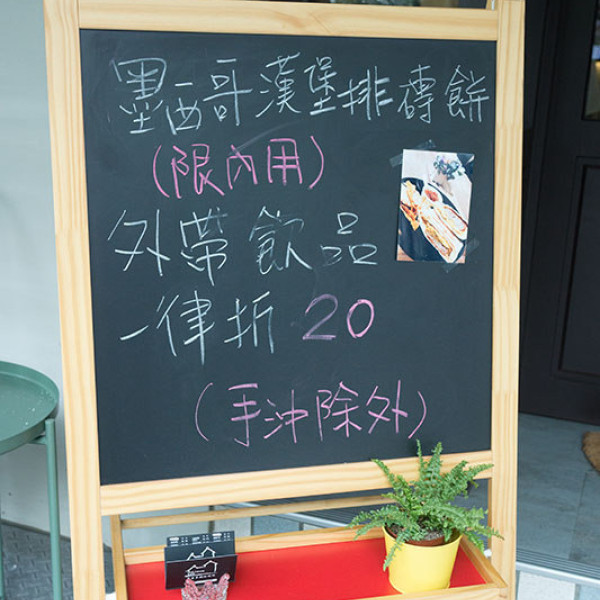 墨西哥漢堡排磚餅
(限內用)
外帶飲品
一律折20
(手沖除外)